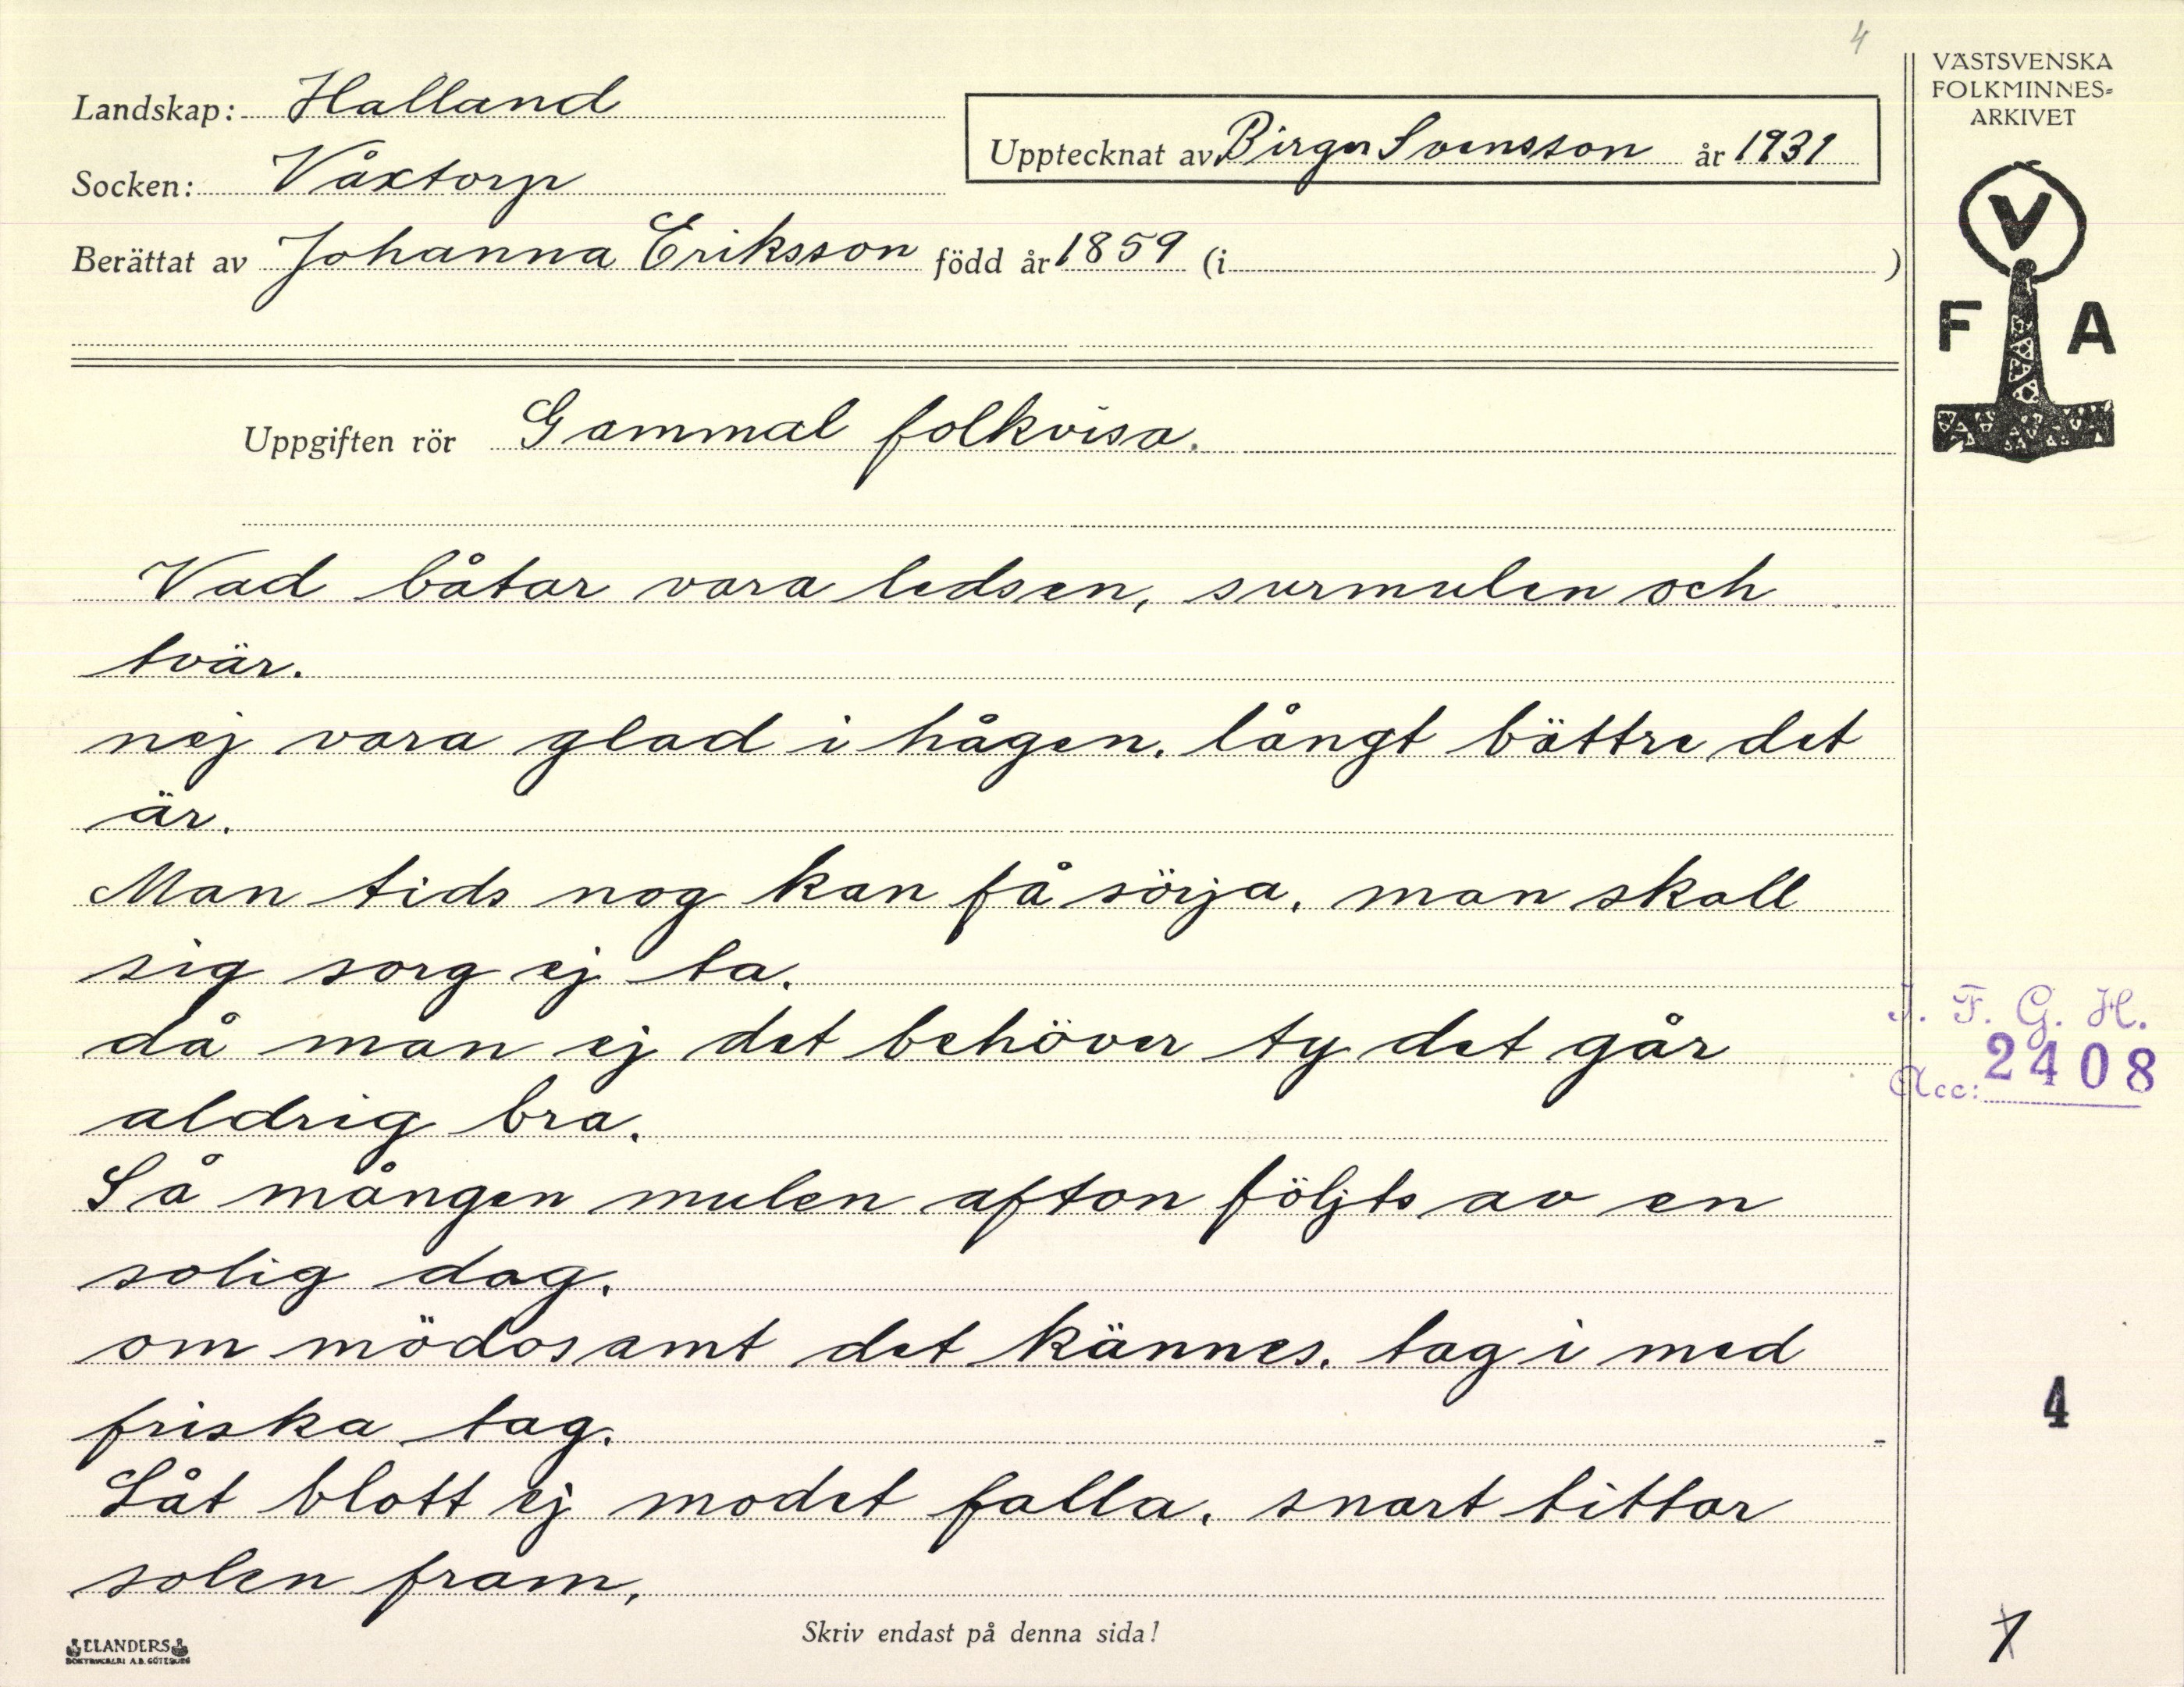 4
VÄSTSVENSKA
FOLKMINNES-
ARKIVET
Landskap: Halland
Upptecknat av Birger Svensson år 1931
Socken: Våxtorp
Berättat av Johanna Eriksson född år 1859 (i )
V
F A
Uppgiften rör Gammal folkvisa.
Vad båtar vara ledsen, surmulen och
tvär.
nej vara glad i hågen. långt bättre det
är.
Man tids nog kan få sörja. man skall
sig sorg ej ta.
då man ej det behöver ty det går
aldrig bra.
Så mången mulen afton följts av en
solig dag.
om mödosamt det kännes. tag i med
friska tag.
Låt blott ej modet falla. snart tittar
solen fram,
I. F. G. H.
Acc: 2408
4
1
Skriv endast på denna sida!
ELANDERS
BOKTRYCKERI A.B. GÖTEBORG